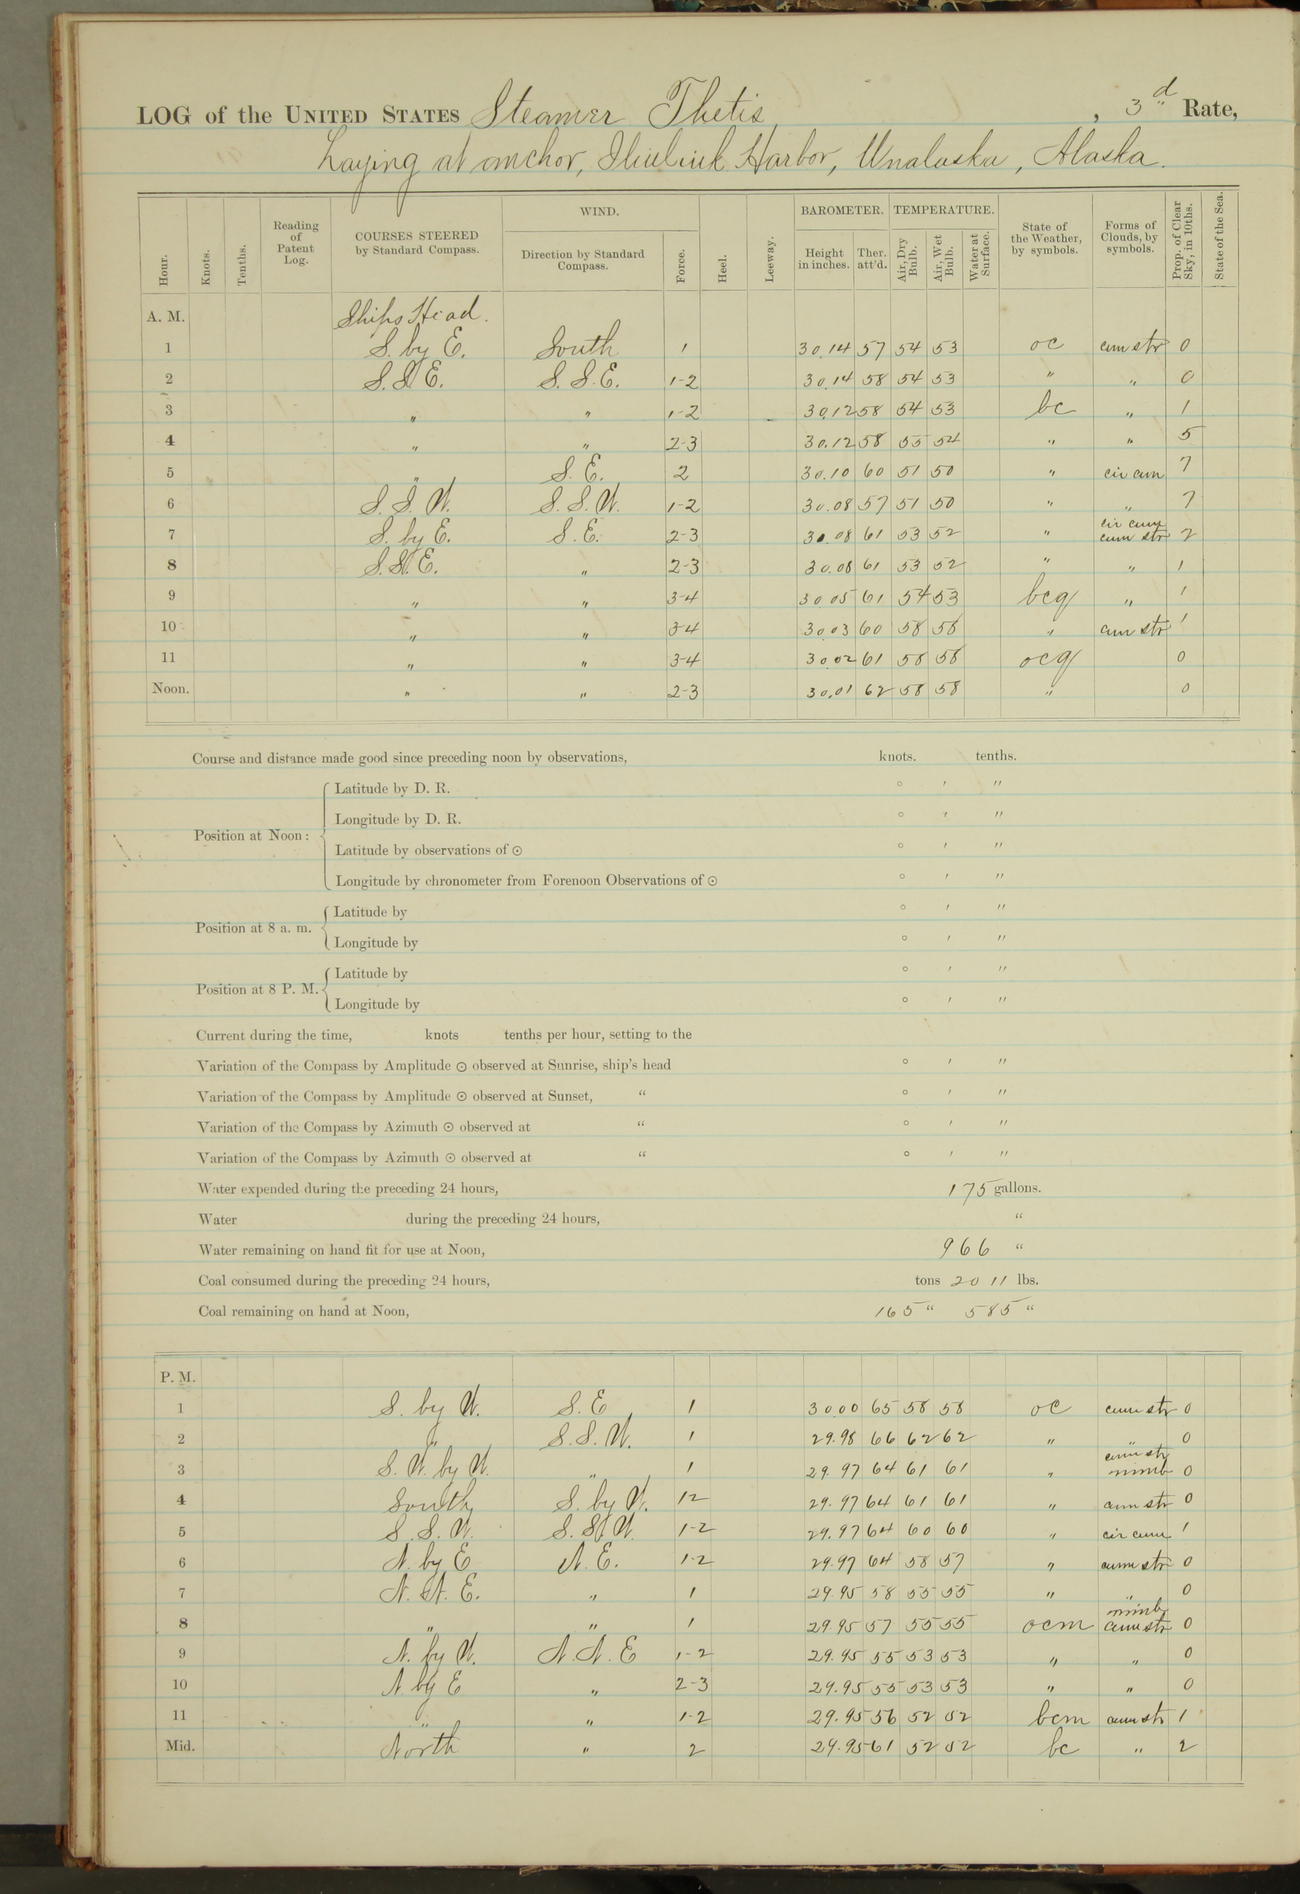 LOG of the UNITED STATES Steamer Thetis, 3d Rate,
Laying at anchor, Iliuliuk Harbor, Unalaska, Alaska.
Hour. Knots. Tenths. Reading of Patent Log. COURSES STEERED by Standard Compass. WIND. Direction by Standard Compass. Force. Heel. Leeway. BAROMETER. Height in inches. Ther. att'd. TEMPERATURE. Air, Dry Bulb. Air, Wet Bulb. Water at Surface. State of the Weather, by symbols. Forms of Clouds, by symbols. Prop. of Clear Sky, in 10ths. State of the Sea.
A. M. Ships Head.
1 S. by E. South 1 30.14 57 54 53 oc cum str 0
2 S.S.E. S.S.E. 1-2 30.14 58 54 53 " " 0
3 " " 1-2 30.12 58 54 53 bc " 1
4 " " 2-3 30.12 58 55 54 " " 5
5 " S.E. 2 30.10 60 51 50 " cir cum 7
6 S.S.W. S.S.W. 1-2 30.08 57 51 50 " " 7
7 S. by E. S.E. 2-3 30.08 61 53 52 " cir cum cum str 2
8 S.S.E. " 2-3 30.08 61 53 52 " " 1
9 " " 3-4 30.05 61 54 53 bcq " 1
10 " " 3-4 30.03 60 58 58 " cum str 1
11 " " 3-4 30.02 61 58 58 ocq 0
Noon. " " 2-3 30.01 62 58 58 " 0
Course and distance made good since preceding noon by observations, knots. tenths.
Position at Noon: Latitude by D. R. ° ' "
Longitude by D. R. ° ' "
Latitude by observations of ⊙ ° ' "
Longitude by chronometer from Forenoon Observations of ⊙ ° ' "
Position at 8 a. m. Latitude by ° ' "
Longitude by ° ' "
Position at 8 P. M. Latitude by ° ' "
Longitude by ° ' "
Current during the time, knots tenths per hour, setting to the
Variation of the Compass by Amplitude ⊙ observed at Sunrise, ship's head ° ' "
Variation of the Compass by Amplitude ⊙ observed at Sunset, " ° ' "
Variation of the Compass by Azimuth ⊙ observed at " ° ' "
Variation of the Compass by Azimuth ⊙ observed at " ° ' "
Water expended during the preceding 24 hours, 175 gallons.
Water during the preceding 24 hours, "
Water remaining on hand fit for use at Noon, 966 "
Coal consumed during the preceding 24 hours, tons 2011 lbs.
Coal remaining on hand at Noon, 165 " 585 "
P. M.
1 S. by W. S.E. 1 30.00 65 58 58 oc cum str 0
2 " S.S.W. 1 29.98 66 62 62 " " 0
3 S.W. by W. " 1 29.97 64 61 61 " cum str nimb 0
4 South S. by W. 1-2 29.97 64 61 61 " cum str 0
5 S.S.W. S.S.W. 1-2 29.97 64 60 60 " cir cum 1
6 N. by E. N.E. 1-2 29.97 64 58 57 " cum str 0
7 N.N.E. " 1 29.95 58 55 55 " " 0
8 " " 1 29.95 57 55 55 ocm nimb cum str 0
9 N. by W. N.N.E 1-2 29.95 55 53 53 " " 0
10 N by E " 2-3 29.95 55 53 53 " " 0
11 " " 1-2 29.95 56 52 52 bcm cum str 1
Mid. North " 2 29.95 61 52 52 bc " 2